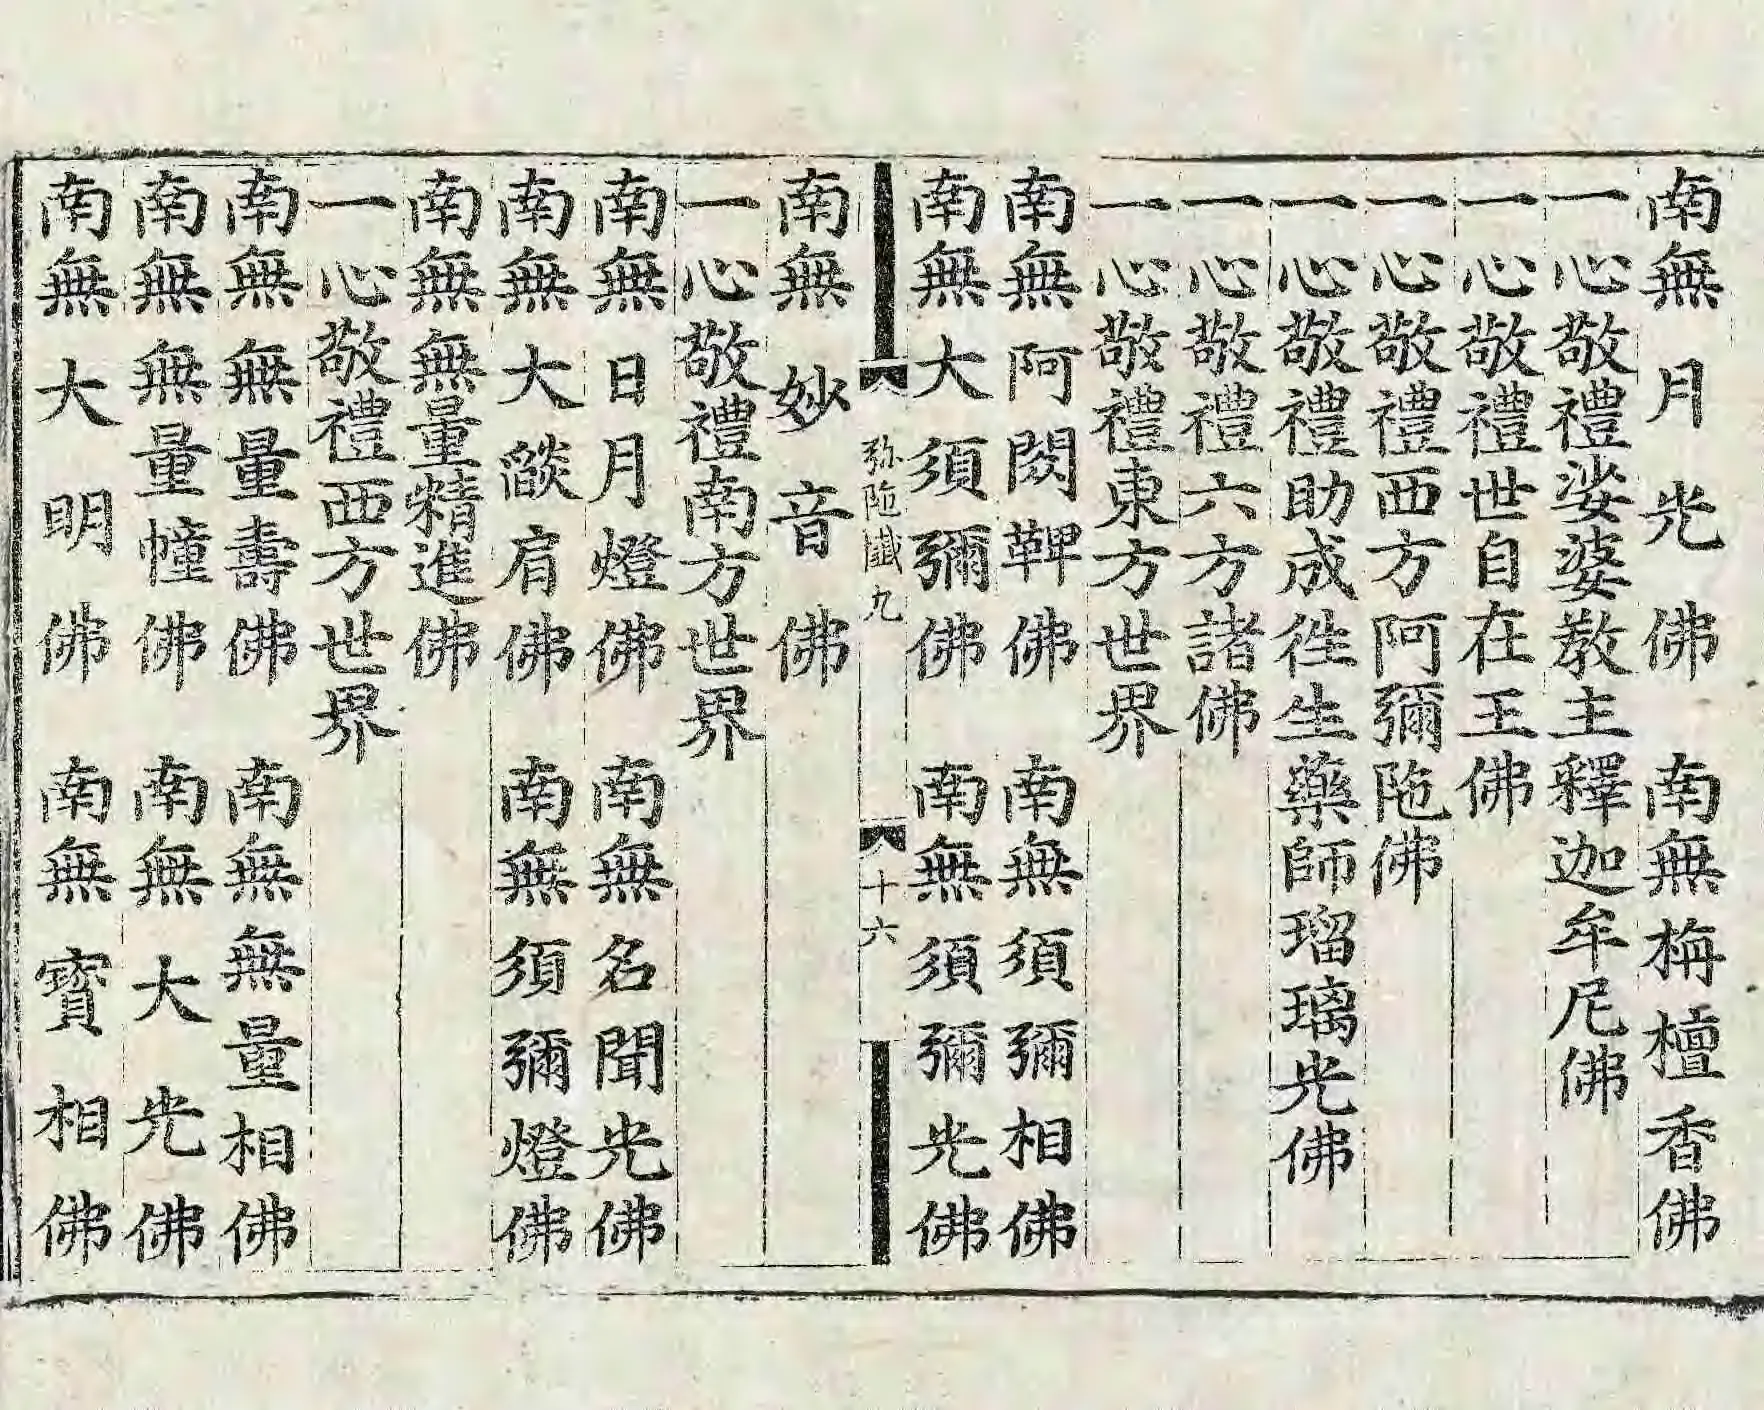 南無月光佛　南無栴檀香佛
一心敬禮娑婆教主釋迦牟尼佛
一心敬禮世自在王佛
一心敬禮西方阿彌陁佛
一心敬禮助成徃生藥師瑠璃光佛
一心敬禮六方諸佛
一心敬禮東方世界
南無阿閦鞞佛　南無須彌相佛
南無大須彌佛　南無須彌光佛
弥陁懴九　十六
南無妙音佛
一心敬禮南方世界
南無日月燈佛　南無名聞光佛
南無大燄肩佛　南無須彌燈佛
南無無量精進佛
一心敬禮西方世界
南無無量壽佛　南無無量相佛
南無無量幢佛　南無大光佛
南無大明佛　南無寶相佛